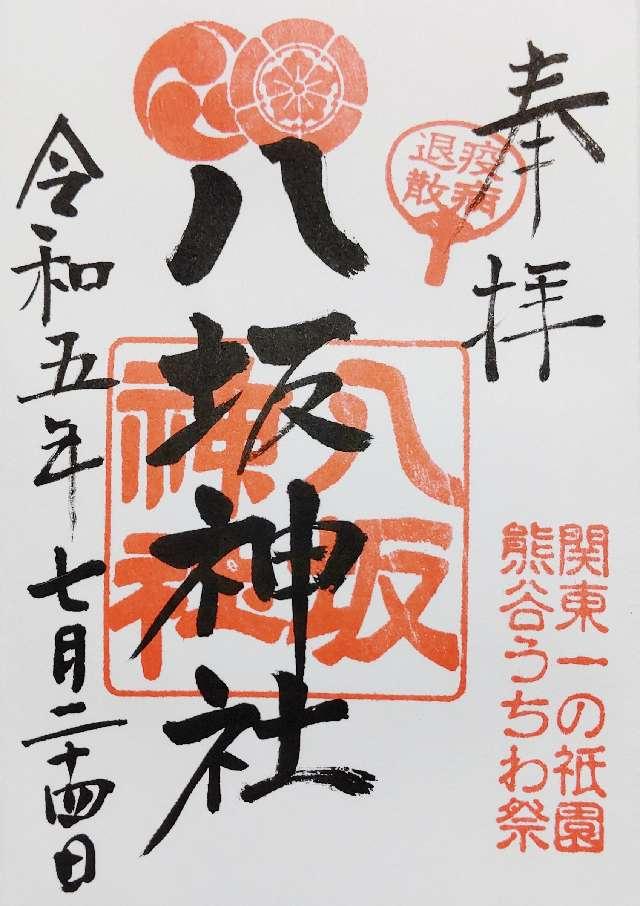 奉拝
疫病
退散
八坂神社
八坂
神社
関東一の祇園
熊谷うちわ祭
令和五年七月二十四日